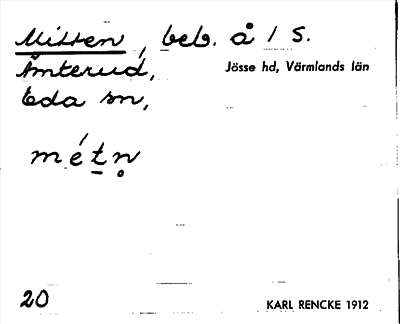 Mitten, beb. å 1 S.
Åmterud,
Jösse hd, Värmlands län
Eda sn,
métn̥
20
KARL RENCKE 1912